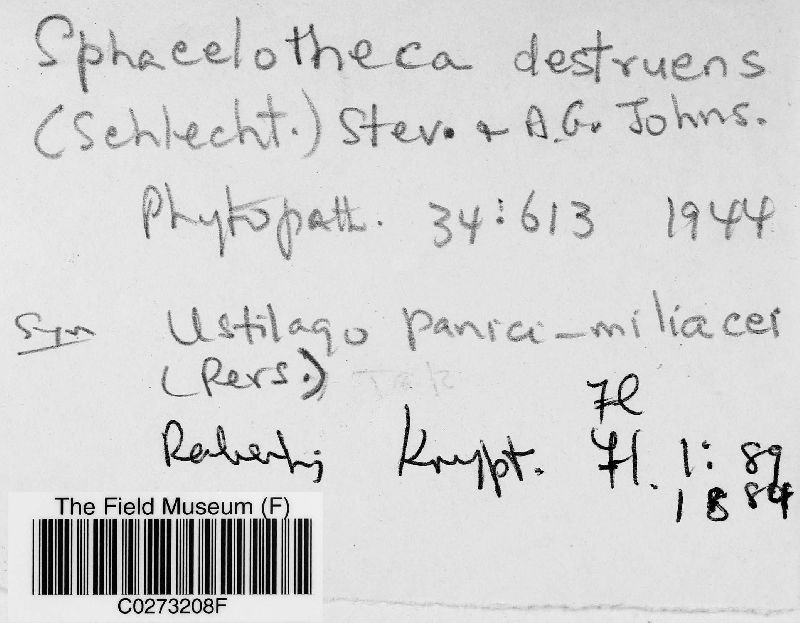 Sphacelotheca destruens
(Schlecht.) Stev. & A.G. Johns.
Phytopath. 34:613 1944
Syn Ustilago panici-miliacei
(Pers.)
Fl
Krypt. Fl. 1: 89
1884
The Field Museum (F)
C0273208F